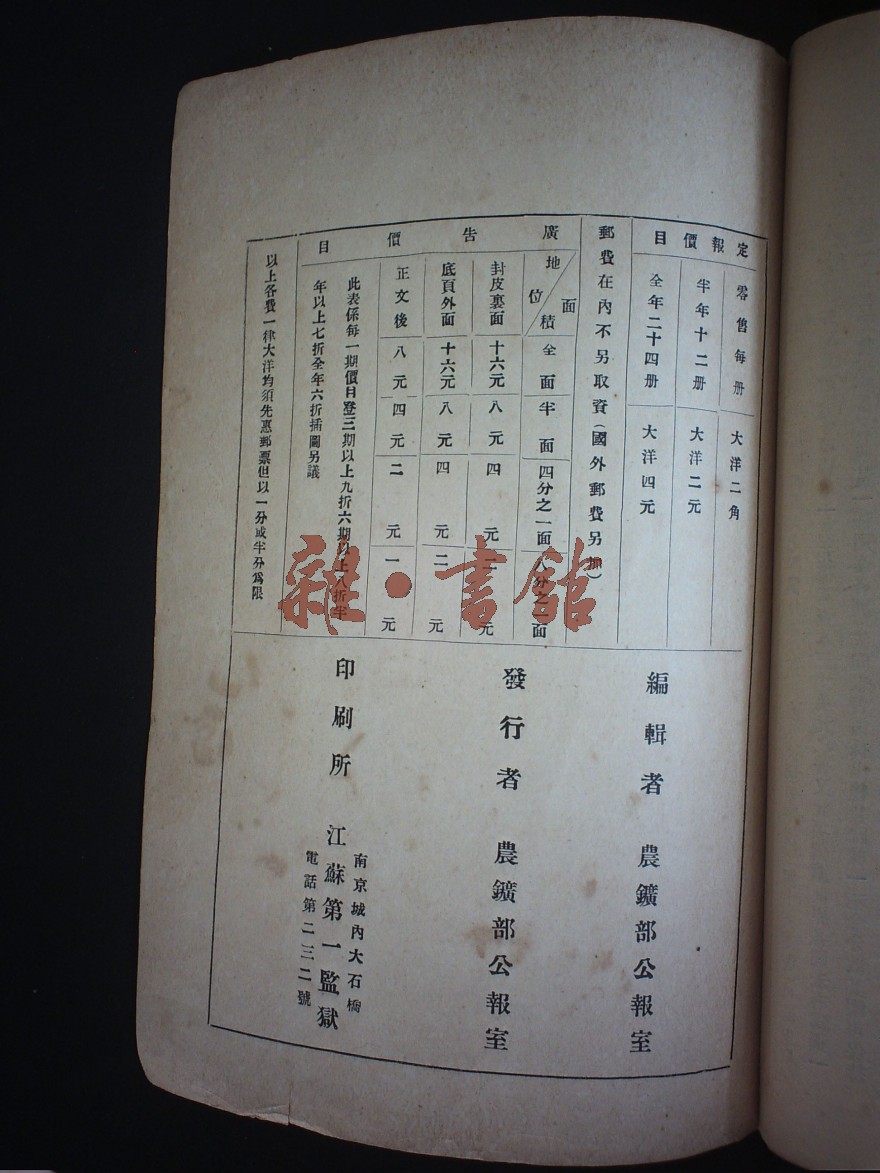 定報價目
零售每册 大洋二角
半年十二册 大洋二元
全年二十四册 大洋四元
郵費在內不另取資（國外郵費另加）
廣告價目
地位 面積 全面 半面 四分之一面 八分之一面
封皮裏面 十六元 八元 四元 二元
底頁外面 十六元 八元 四元 二元
正文後 八元 四元 二元 一元
此表係每一期價目登三期以上九折六期以上八折半
年以上七折全年六折插圖另議
以上各費一律大洋均須先惠郵票但以一分或半分爲限
編輯者 農鑛部公報室
發行者 農鑛部公報室
印刷所 江蘇第一監獄
南京城內大石橋
電話第二三二號
雜·書館